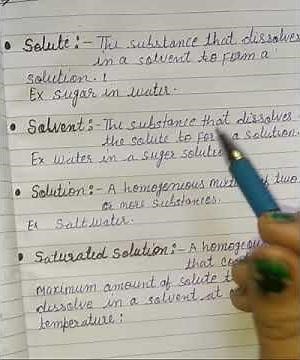 • Solute:- The substance that dissolves
in a solvent to form a
solution. !
Ex Sugar in water.
• Solvent:- The substance that dissolves
the solute to for a solution.
Ex Water in a suger
• Solution:- A homogenious two
or more substances.
Ex Saltwater.
• Saturated Solution:- A
that
maximum amount of solute
dissolve in a solvent at
temperature: